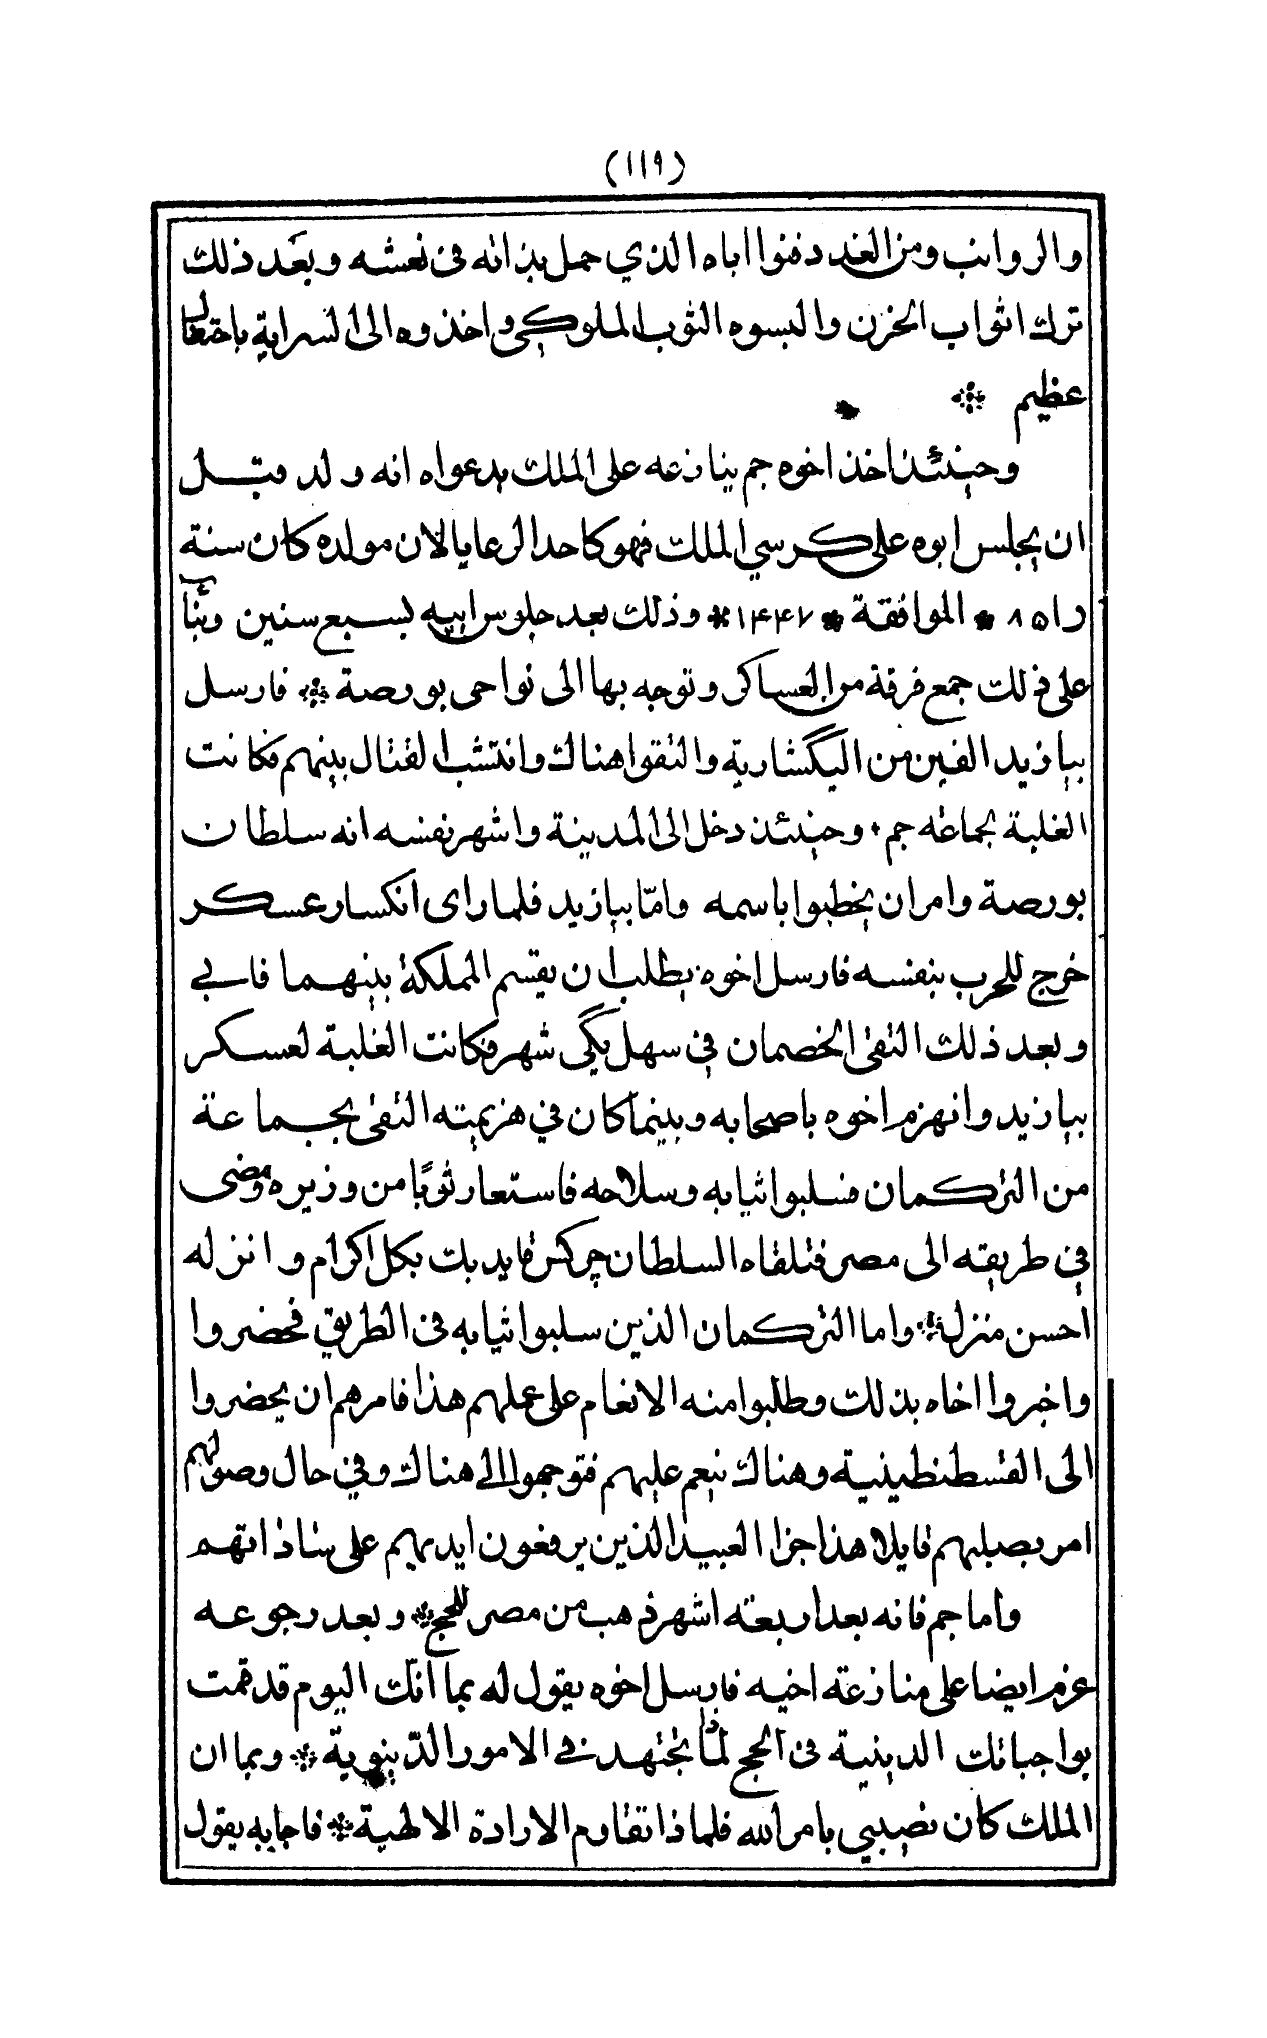 (١١٩)
والرواتب ومن الغد دفنوا اباه الذي حمل بذاته فى نعشه وبعد ذلك
ترك اثواب الحزن والبسوه الثوب الملوكي واخذوه الى السراية باحتفال
عظيم *
وحينئذ اخذ اخوه جم ينازعه على الملك بدعواه انه ولد قبل
ان يجلس ابوه على كرسي الملك فهو كاحد الرعايا لان مولده كان سنة
٨٥١ * الموافقة * ١٤٤٧ * وذلك بعد جلوس ابيه بسبع سنين وبناً
على ذلك جمع فرقة من العساكر وتوجه بها الى نواحى بورصة * فارسل
بيازيد الفين من اليكشارية والتقوا هناك وانتشب القتال بينهم فكانت
الغلبة لجماعته جم * وحينئذ دخل الى المدينة واشهر نفسه انه سلطان
بورصة وامر ان يخطبوا باسمه وامّا بيازيد فلما راى انكسار عسكر
خرج للحرب بنفسه فارسل اخوه يطلب ان يقسم المملكة بينهما فابي
وبعد ذلك التقى الخصمان في سهل يكى شهر فكانت الغلبة لعسكر
بيازيد وانهزم اخوه باصحابه وبينما كان في هزيمته التقى بجماعة
من التركمان فسلبوا ثيابه وسلاحه فاستعار ثوبًا من وزيره ومضى
في طريقه الى مصر فتلقاه السلطان چركس قايد بك بكل اكرام وانزله
احسن منزل * واما التركمان الذين سلبوا ثيابه فى الطريق فحضروا
واخبروا اخاه بذلك وطلبوا منه الانعام على عملهم هذا فامرهم ان يحضروا
الى القسطنطينية وهناك ينعم عليهم فتوجهوا الى هناك وفي حال وصولهم
امر بصلبهم قايلا هذا جزا العبيد الذين يرفعون ايديهم على ساداتهم
واما جم فانه بعد اربعته اشهر ذهب من مصر للحج * وبعد رجوعه
عزم ايضا على منازعته اخيه فارسل اخوه يقول له بما انّك اليوم قد قمت
بواجباتك الدينية فى الحج لماذا تجتهد فى الامور الدّنيوية * وبما ان
الملك كان نصيبي بامر الله فلماذا تقاوم الارادة الالهية * فاجابه يقول